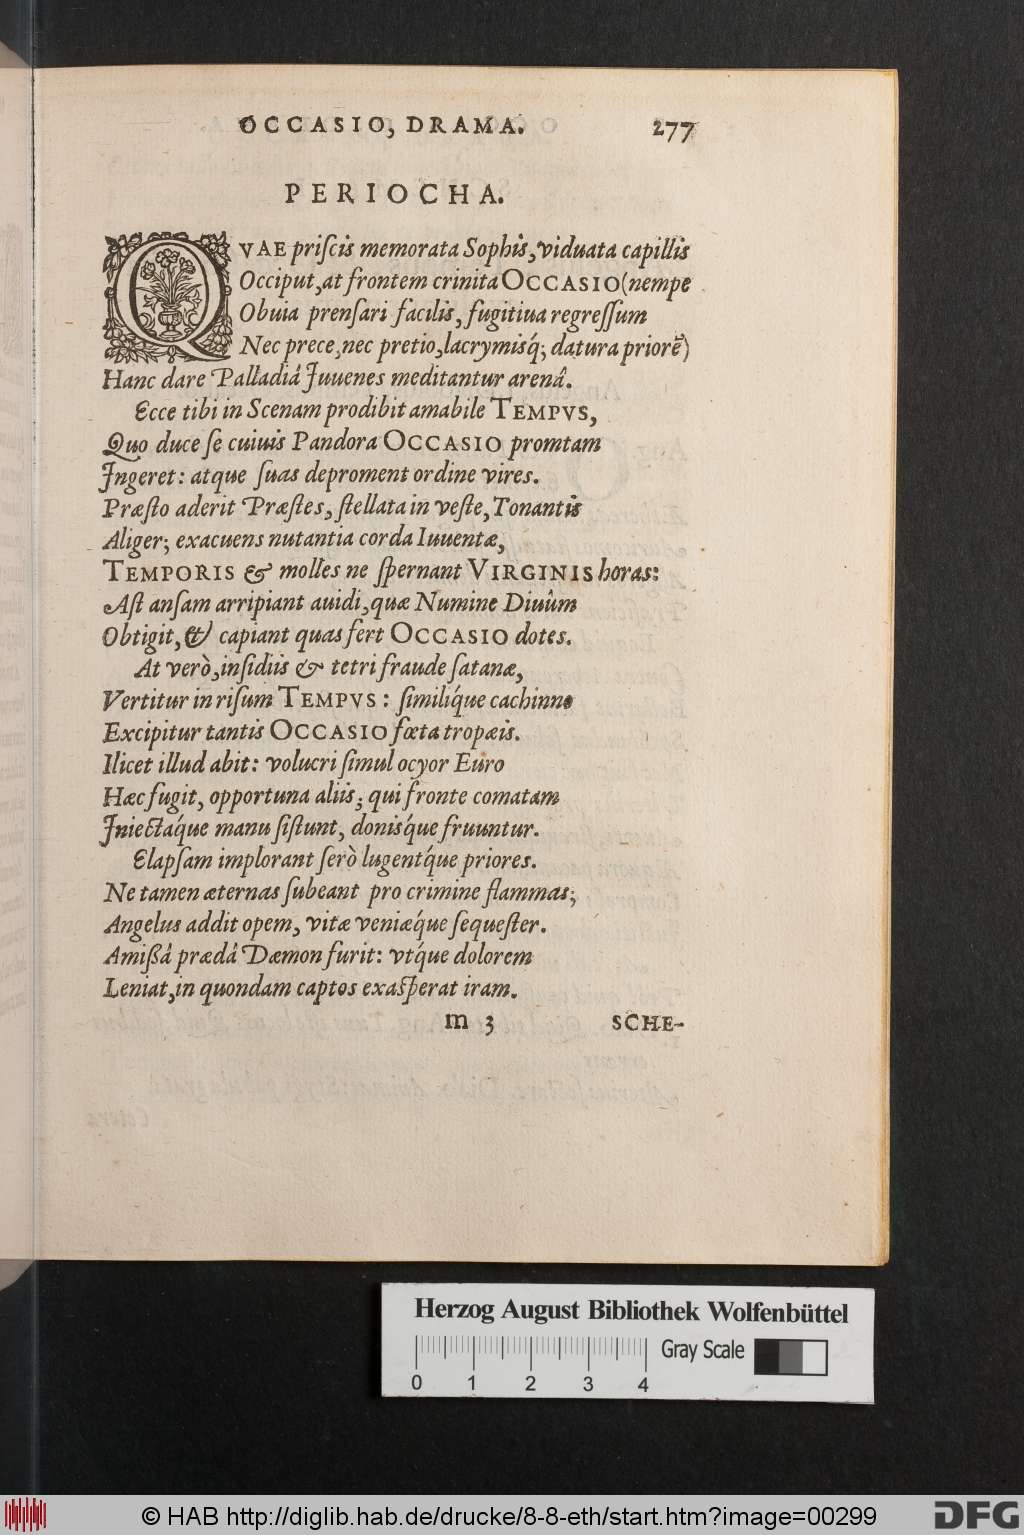 OCCASIO, DRAMA. 277
PERIOCHA.
QVAE priſcis memorata Sophis, viduata capillis
Occiput, at frontem crinita OCCASIO (nempe
Obuia prenſari facilis, fugitiua regreſſum
Nec prece, nec pretio, lacrymisq́; datura priorē)
Hanc dare Palladiâ Juuenes meditantur arenâ.
Ecce tibi in Scenam prodibit amabile TEMPVS,
Quo duce ſe cuiuis Pandora OCCASIO promtam
Jngeret: atque ſuas deproment ordine vires.
Præſto aderit Præſtes, ſtellata in veſte, Tonantis
Aliger; exacuens nutantia corda Iuuentæ,
TEMPORIS & molles ne ſpernant VIRGINIS horas:
Aſt anſam arripiant auidi, quæ Numine Diuûm
Obtigit, & capiant quas fert OCCASIO dotes.
At verò, inſidiis & tetri fraude ſatanæ,
Vertitur in riſum TEMPVS: ſimiliq́ue cachinno
Excipitur tantis OCCASIO fœta tropæis.
Ilicet illud abit: volucri ſimul ocyor Euro
Hæc fugit, opportuna aliis; qui fronte comatam
Jniectaq́ue manu ſiſtunt, donisq́ue fruuntur.
Elapſam implorant ſerò lugentq́ue priores.
Ne tamen æternas ſubeant pro crimine flammas;
Angelus addit opem, vitæ veniæq́ue ſequeſter.
Amißâ prædâ Dæmon furit: vtq́ue dolorem
Leniat, in quondam captos exaſperat iram.
m 3 SCHE-
Herzog August Bibliothek Wolfenbüttel
Gray Scale
0 1 2 3 4
© HAB http://diglib.hab.de/drucke/8-8-eth/start.htm?image=00299 DFG